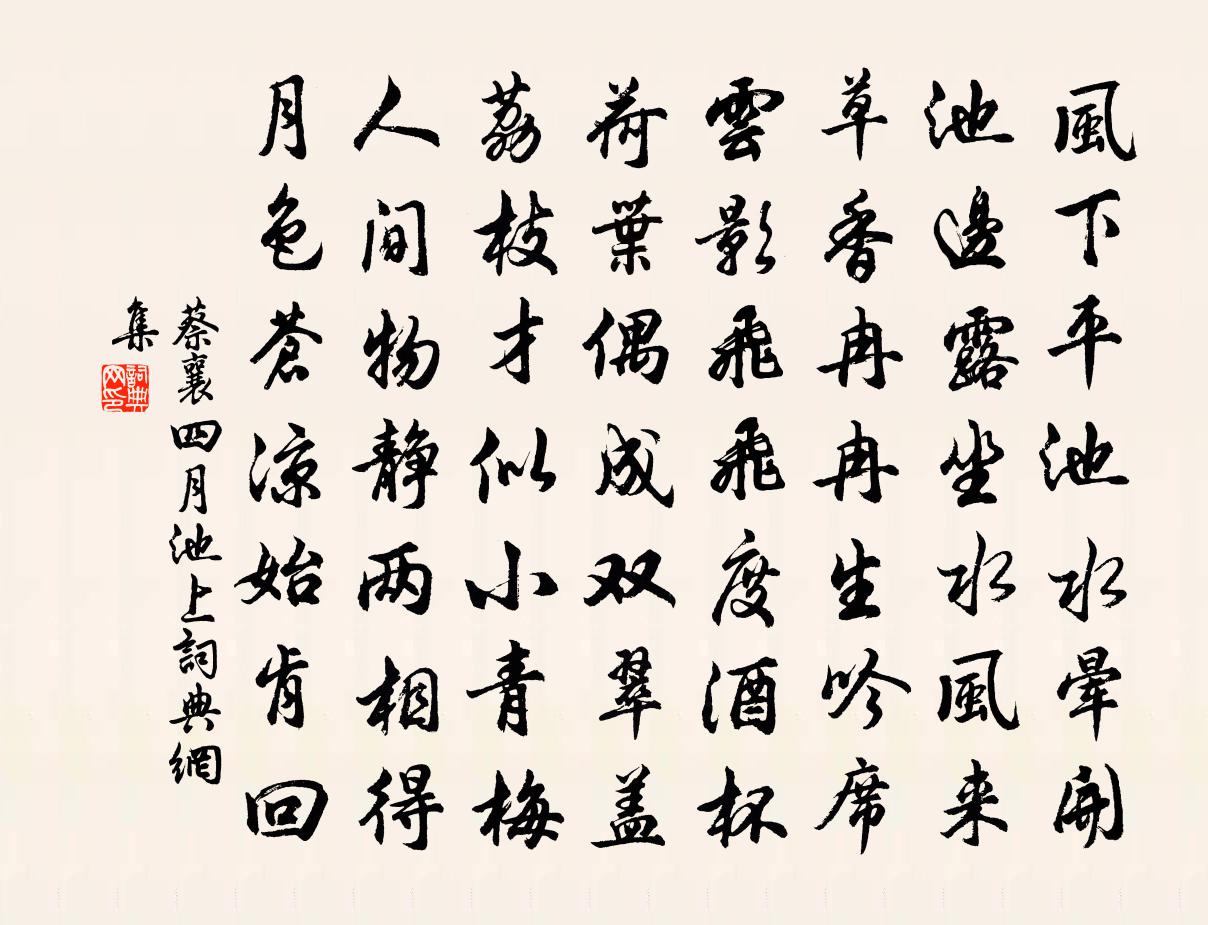 風下平池水暈開
池邊露坐水風来
草香冉冉生吟席
雲影飛飛度酒杯
荷葉偶成双翠盖
荔枝才似小青梅
人间物静两相得
月色蒼涼始肯回
蔡襄四月池上詞典網
集
詞典
网印